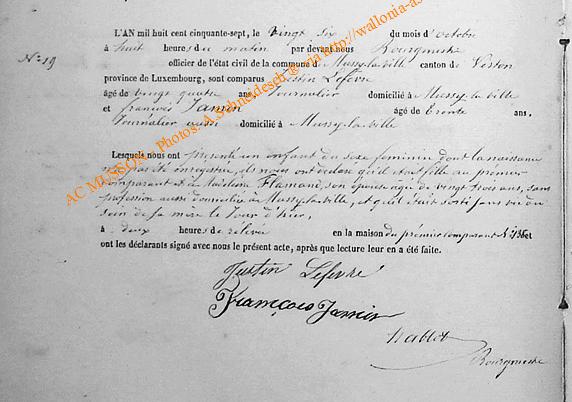 L'AN mil huit cent cinquante-sept, le Vingt Six du mois d'octobre
N° 19 à huit heures du matin par devant nous Bourgmestre
officier de l'état civil de la commune de Mussy-la-ville canton de Virton
province de Luxembourg, sont comparus Justin Lefevre
âgé de vingt quatre ans Journalier domicilié à Mussy-la-ville
et françois Jamin âgé de Trente ans,
Journalier aussi domicilié à Mussy-la-ville
Lesquels nous ont présenté un enfant du sexe feminin dont la naissance
n'a pas été enregistrée, ils nous ont déclaré qu'il etait fille au premier
comparant et de Madeleine Flamand, son épouse agée de vingt trois ans, sans
profession aussi domiciliée à Mussy-la-ville, et qu'il était sorti sans vie du
sein de sa mère le jour d'hier,
à deux heures de relevée en la maison du prémier comparant N° 136 et
ont les déclarants signé avec nous le présent acte, après que lecture leur en a été faite.
Justin Lefevre
François Jamin
Bourgmestre
AC MUSSON - Photos: A.Schneidesch @ via http://wallonia-as